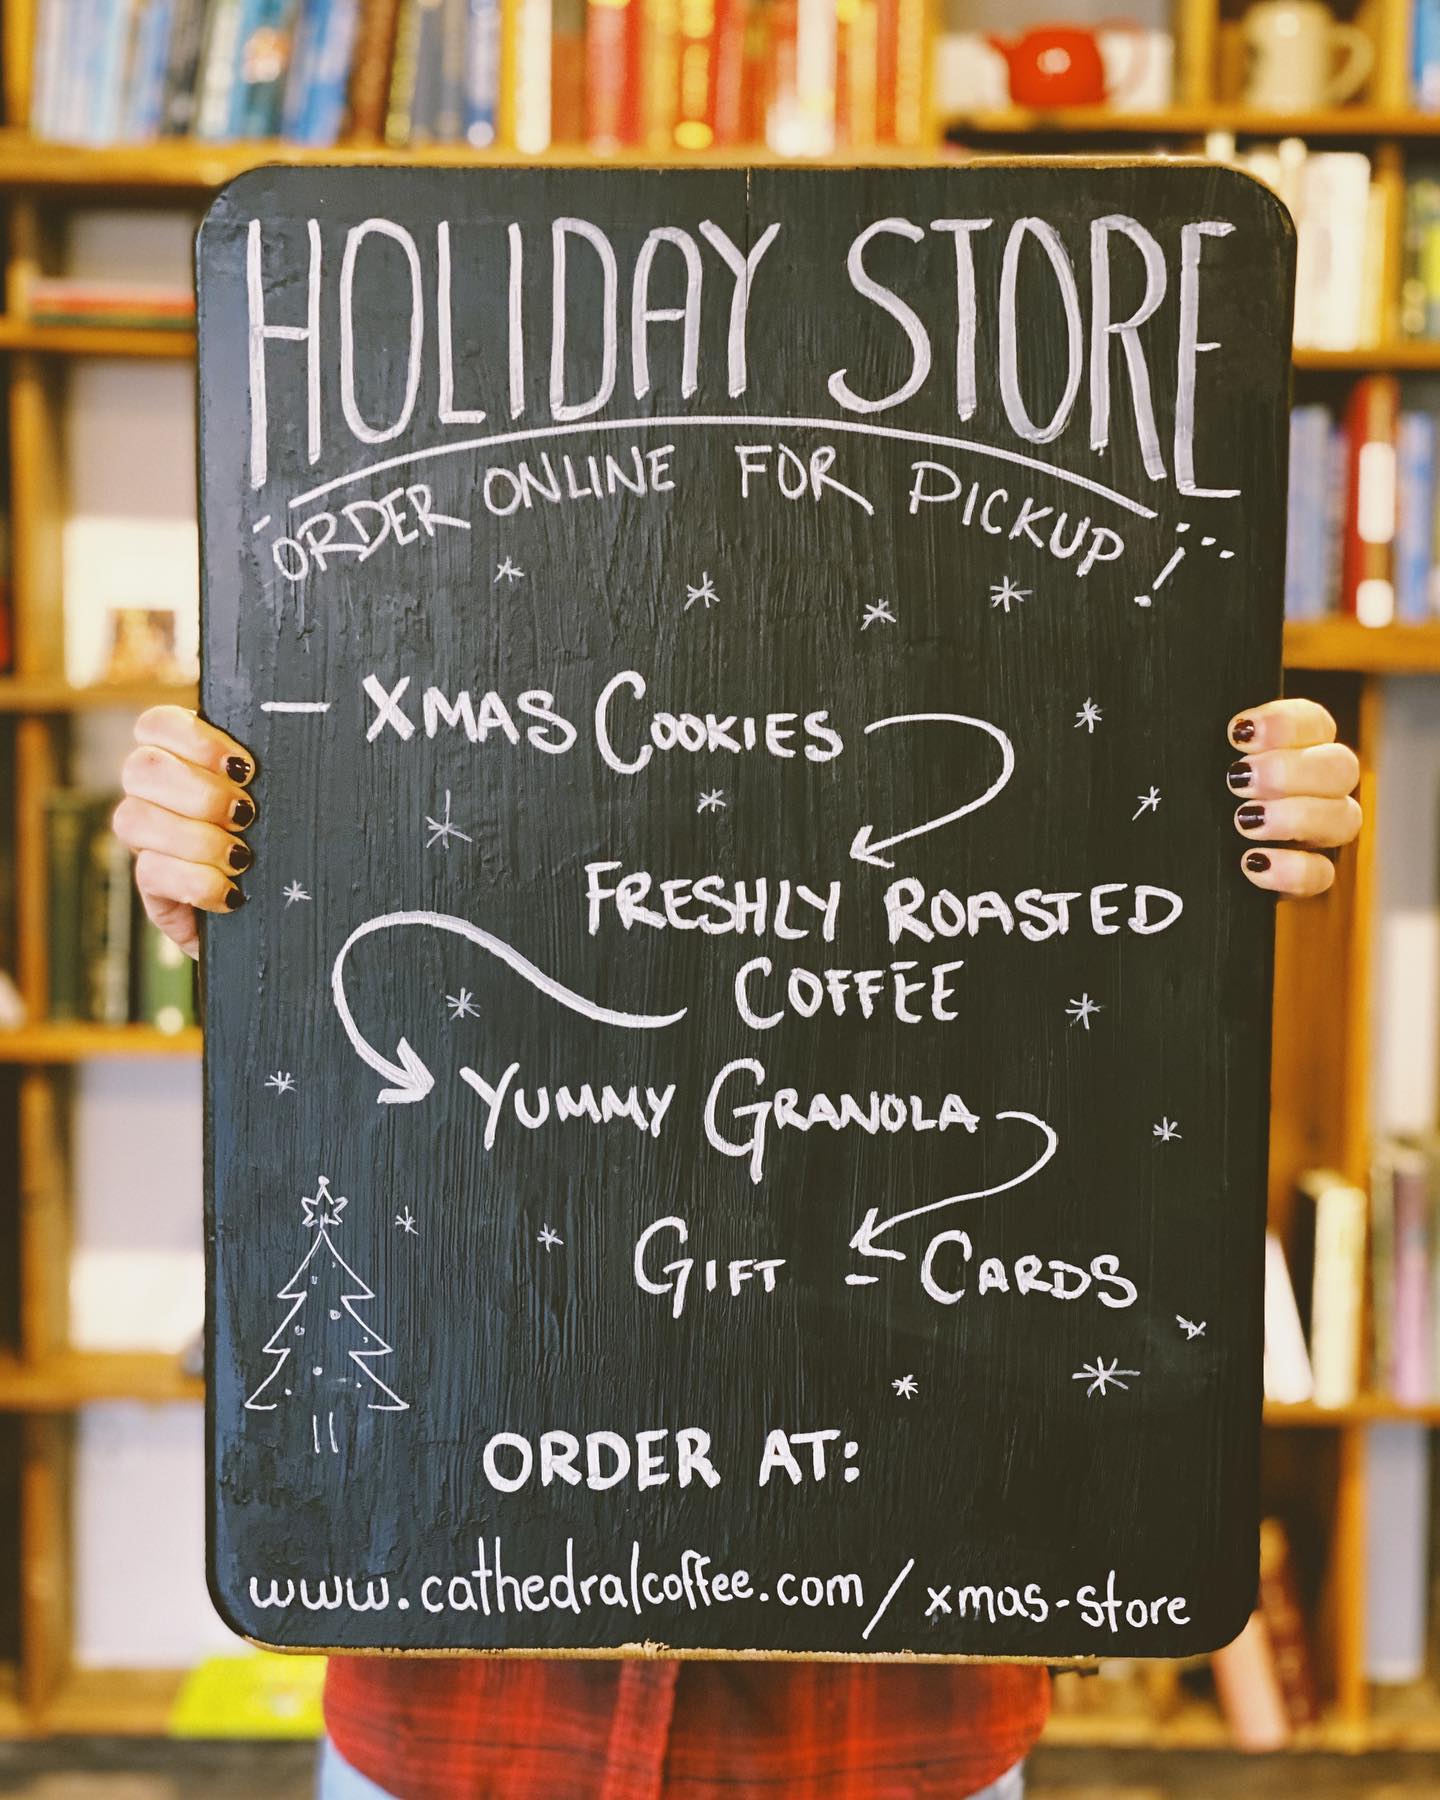 HOLIDAY STORE
ORDER ONLINE FOR PICKUP!
- XMAS COOKIES
FRESHLY ROASTED
COFFEE
YUMMY GRANOLA
GIFT - CARDS
ORDER AT:
www.cathedralcoffee.com/xmas-store